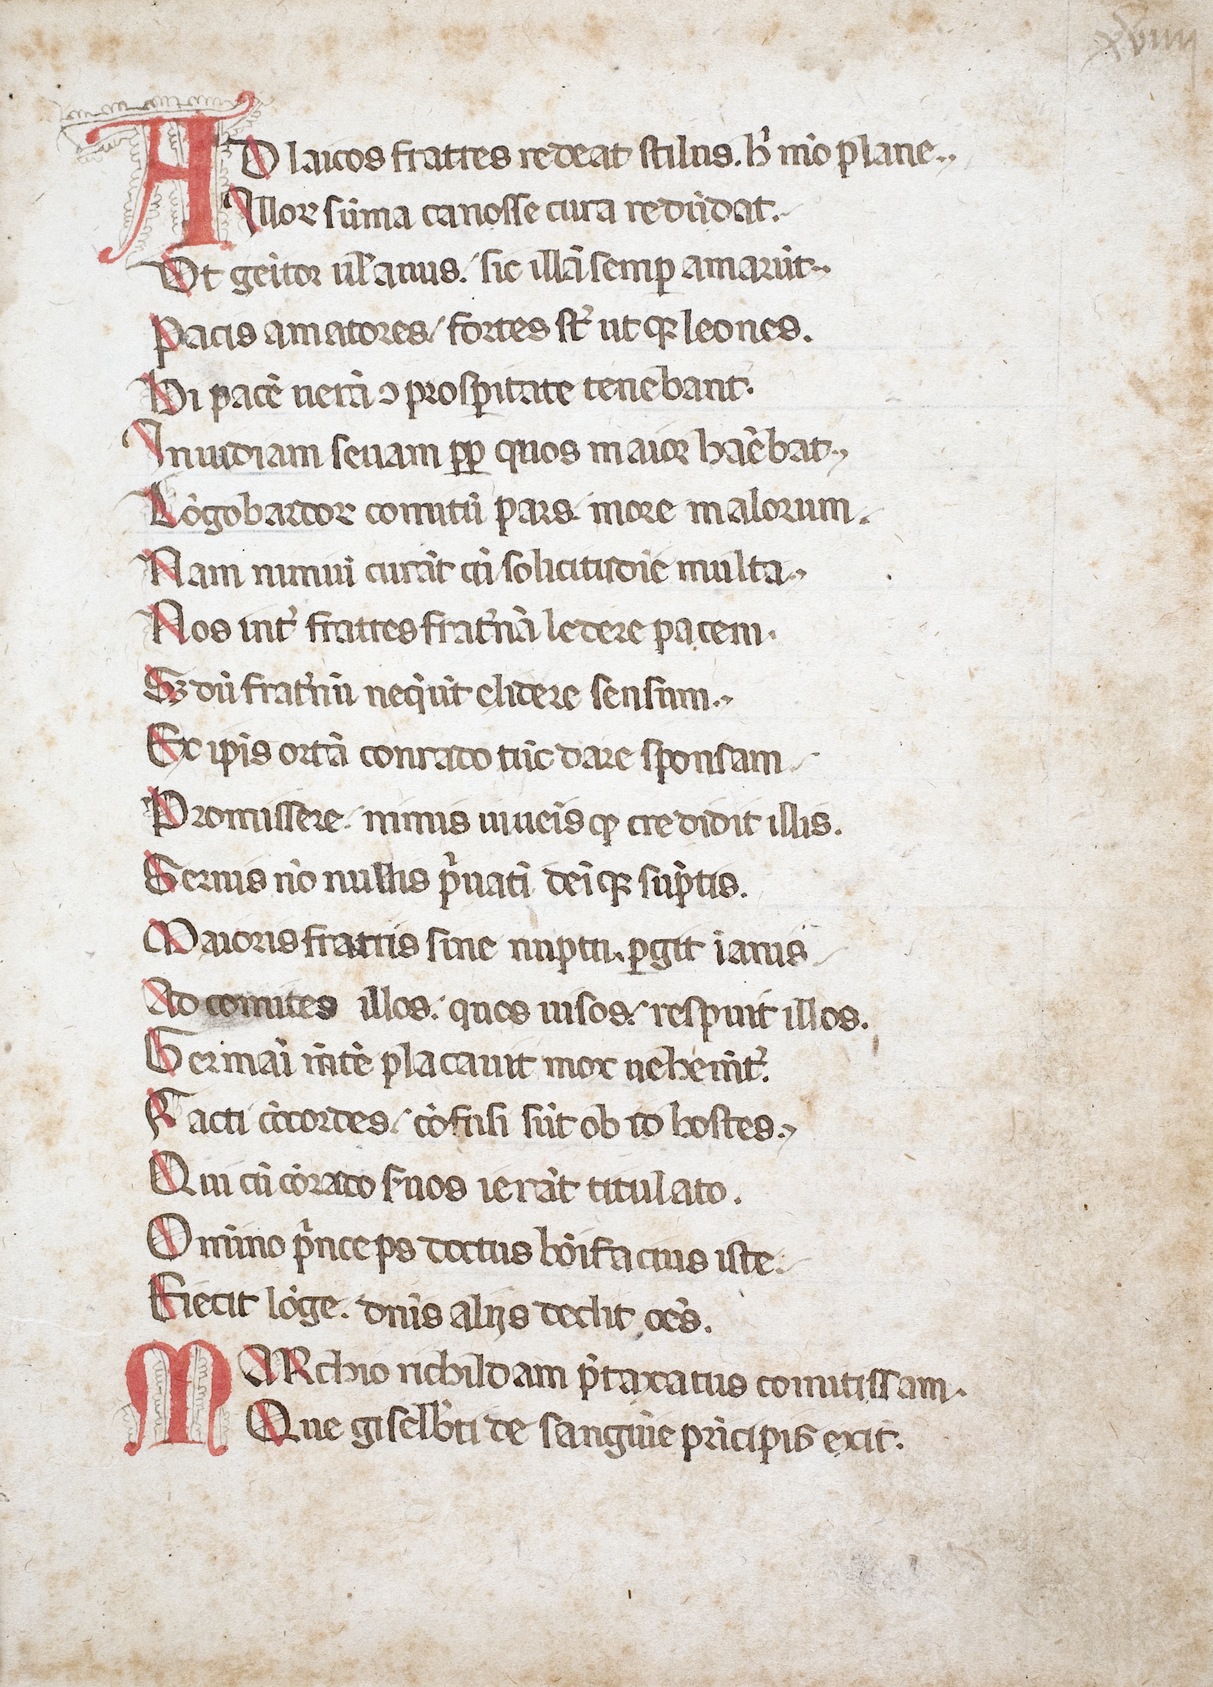 xviiii
AD laicos frattes redeat stilus. h̓ m̄o plane.
Illoꝝ sūma canosse cura redūdat.
Vt geītor ul̓ auus. sic illā semꝑ amarūt
Pacis amatores fortes st̄ ut qꝫ leones.
Hi pacē uerā ꝯ prosꝑitate tenebant.
Inuidiam seuam ꝓp quos maior haēbat
Lōgobardoꝝ comitū pars more malorum.
Nam nimui curāt cū solicitudīe multa
Nos int̓ frattes frat̓nā ledere pacem.
Sꝫ dū frat̓nū neq̓ūt elidere sensum.
Ex ip̄is ortā conrado tūc dare sponsam
Promissere. minus iuueīsqꝫ credidit illis.
Seruus nō nullis p̓uatī deīqꝫ sūptis.
Maioris frattis sine nuptu. ꝑgit ianus
Ad comites illos. quos uisos. respuit illos.
Germāi m̄tē placauit mox uehem̄t̓.
Facti cōcordes. cōfusi sūt ob id hostes.
Qui cū cōrado s̓uos ierāt titulato.
Omīno p̓nceps doctus bōifacius iste.
Eiecit lōge. dn̄is alijs dedit oc̄s.
MARchio richildam p̓taxatus comitissam.
Que giselb̓ti de sanguīe prīcipis exit.